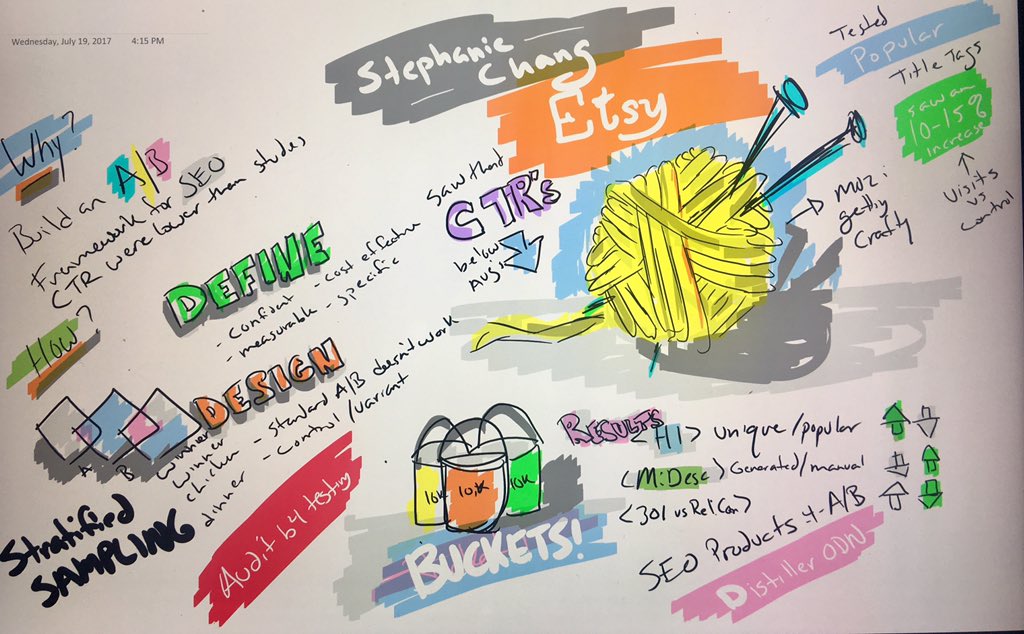 Wednesday, July 19, 2017 4:15 PM
Stephanie
Chang
Etsy
Tested
Popular
Title Tags
saw an
10-15%
increase
visits
vs
control
Why?
Build an A/B
Framework for SEO
CTR were lower than studies
How?
DEFINE
- confident - cost effective
- measurable - specific
DESIGN
- standard A/B doesn't work
- control/variant
A B
winner
winner
chicken
dinner
Stratified
SAMPLING
Audit b4 testing
saw that
CTR's
below
Aug's
MOZ:
getting
Crafty
10K 10K 10K
BUCKETS!
RESULTS
<H1> unique/popular
<M:Desc> Generated/manual
<301 vs RelCan>
SEO Products -4- A/B
Distiller ODN